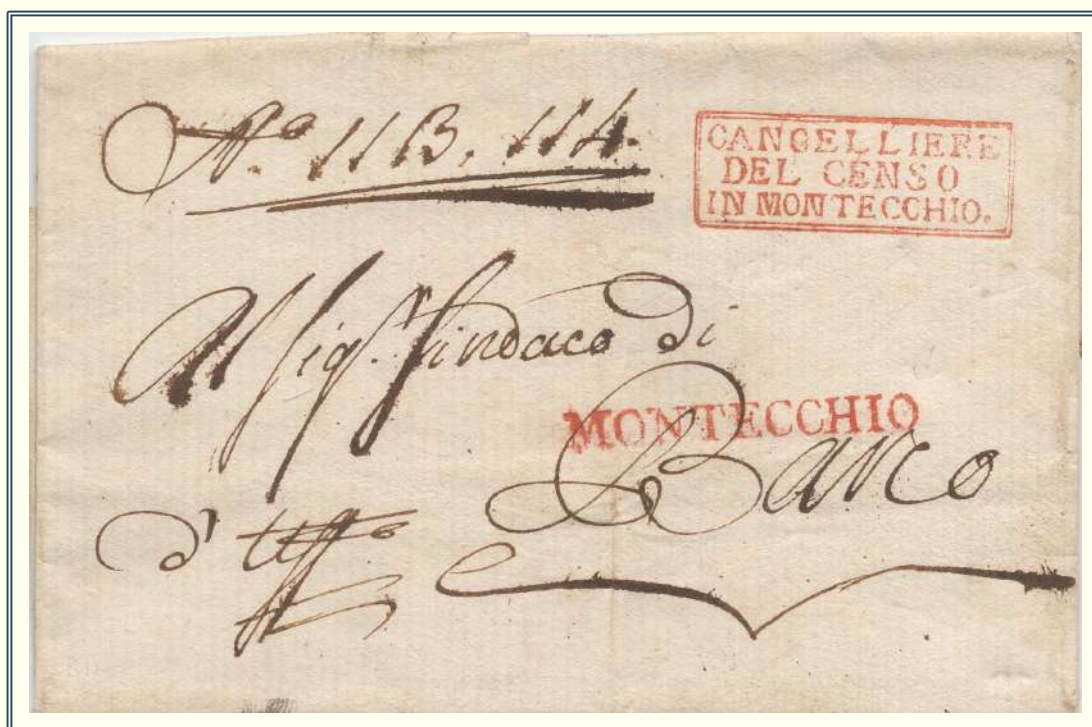 Nº 113. 114.
CANCELLIERE
DEL CENSO
IN MONTECCHIO.
Al Sigr. Sindaco di
MONTECCHIO
Barco
d' Uffo